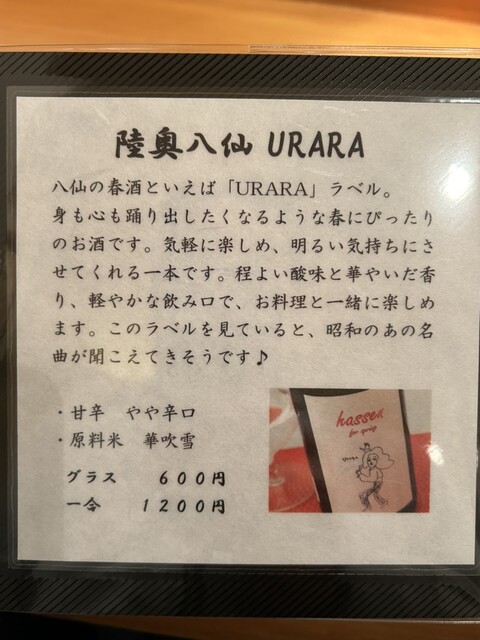 陸奥八仙 URARA
八仙の春酒といえば「URARA」ラベル。
身も心も踊り出したくなるような春にぴったり
のお酒です。気軽に楽しめ、明るい気持ちにさ
せてくれる一本です。程よい酸味と華やいだ香
り、軽やかな飲み口で、お料理と一緒に楽しめ
ます。このラベルを見ていると、昭和のあの名
曲が聞こえてきそうです♪
・甘辛　やや辛口
・原料米　華吹雪
グラス　６００円
一合　１２００円
hassen
for spring